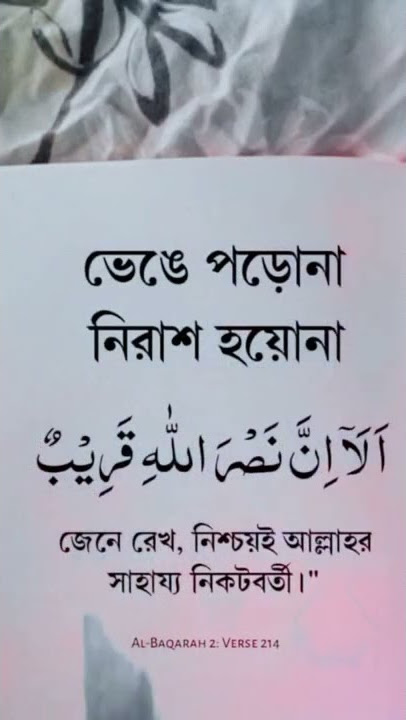 ভেঙে পড়োনা
নিরাশ হয়োনা
اَلَآ اِنَّ نَصْرَ اللّٰهِ قَرِيْبٌ
জেনে রেখ, নিশ্চয়ই আল্লাহর
সাহায্য নিকটবর্তী।"
AL-BAQARAH 2: VERSE 214